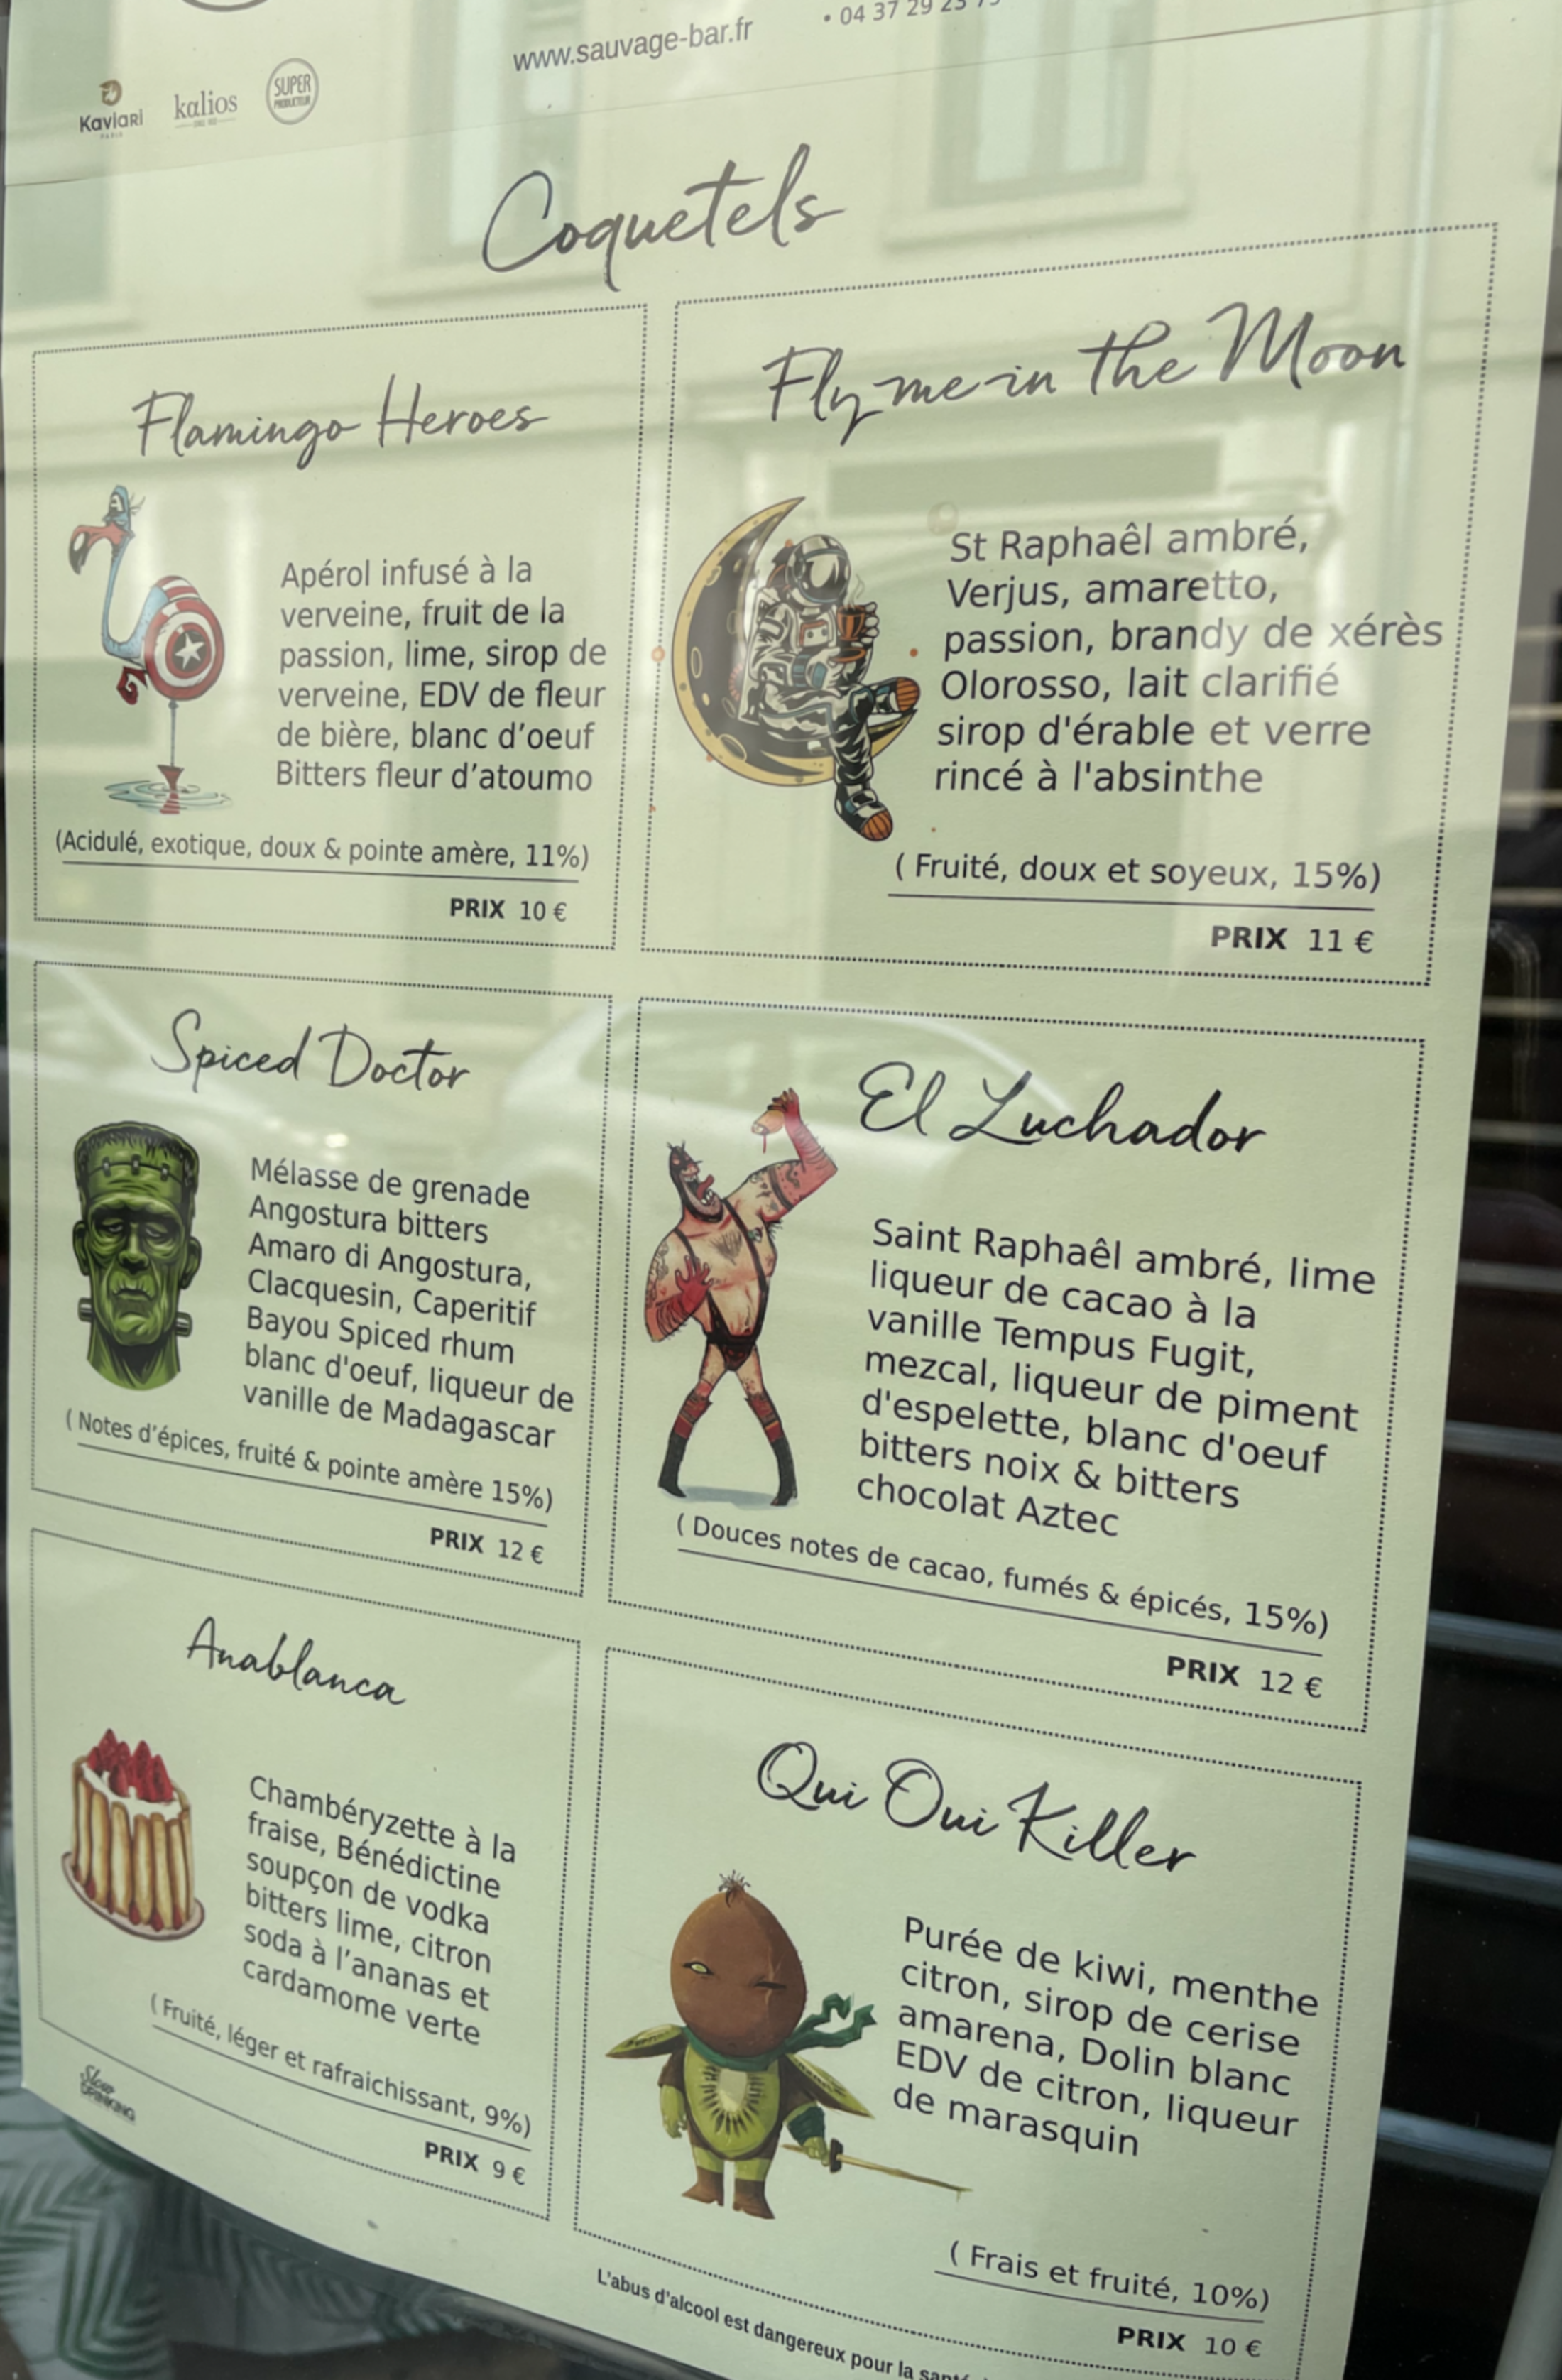 www.sauvage-bar.fr
• 04 37 29 23
Kaviari
PARIS
kalios
SUPER
PRODUCTEUR
Coquetels
Flamingo Heroes
Apérol infusé à la
verveine, fruit de la
passion, lime, sirop de
verveine, EDV de fleur
de bière, blanc d’oeuf
Bitters fleur d’atoumo
(Acidulé, exotique, doux & pointe amère, 11%)
PRIX 10 €
Fly me in the Moon
St Raphaêl ambré,
Verjus, amaretto,
passion, brandy de xérès
Olorosso, lait clarifié
sirop d'érable et verre
rincé à l'absinthe
( Fruité, doux et soyeux, 15%)
PRIX 11 €
Spiced Doctor
Mélasse de grenade
Angostura bitters
Amaro di Angostura,
Clacquesin, Caperitif
Bayou Spiced rhum
blanc d'oeuf, liqueur de
vanille de Madagascar
( Notes d’épices, fruité & pointe amère 15%)
PRIX 12 €
El Luchador
Saint Raphaêl ambré, lime
liqueur de cacao à la
vanille Tempus Fugit,
mezcal, liqueur de piment
d'espelette, blanc d'oeuf
bitters noix & bitters
chocolat Aztec
( Douces notes de cacao, fumés & épicés, 15%)
PRIX 12 €
Anablanca
Chambéryzette à la
fraise, Bénédictine
soupçon de vodka
bitters lime, citron
soda à l’ananas et
cardamome verte
( Fruité, léger et rafraichissant, 9%)
PRIX 9 €
Qui Oui Killer
Purée de kiwi, menthe
citron, sirop de cerise
amarena, Dolin blanc
EDV de citron, liqueur
de marasquin
( Frais et fruité, 10%)
PRIX 10 €
Slow
DRINKING
L’abus d’alcool est dangereux pour la santé